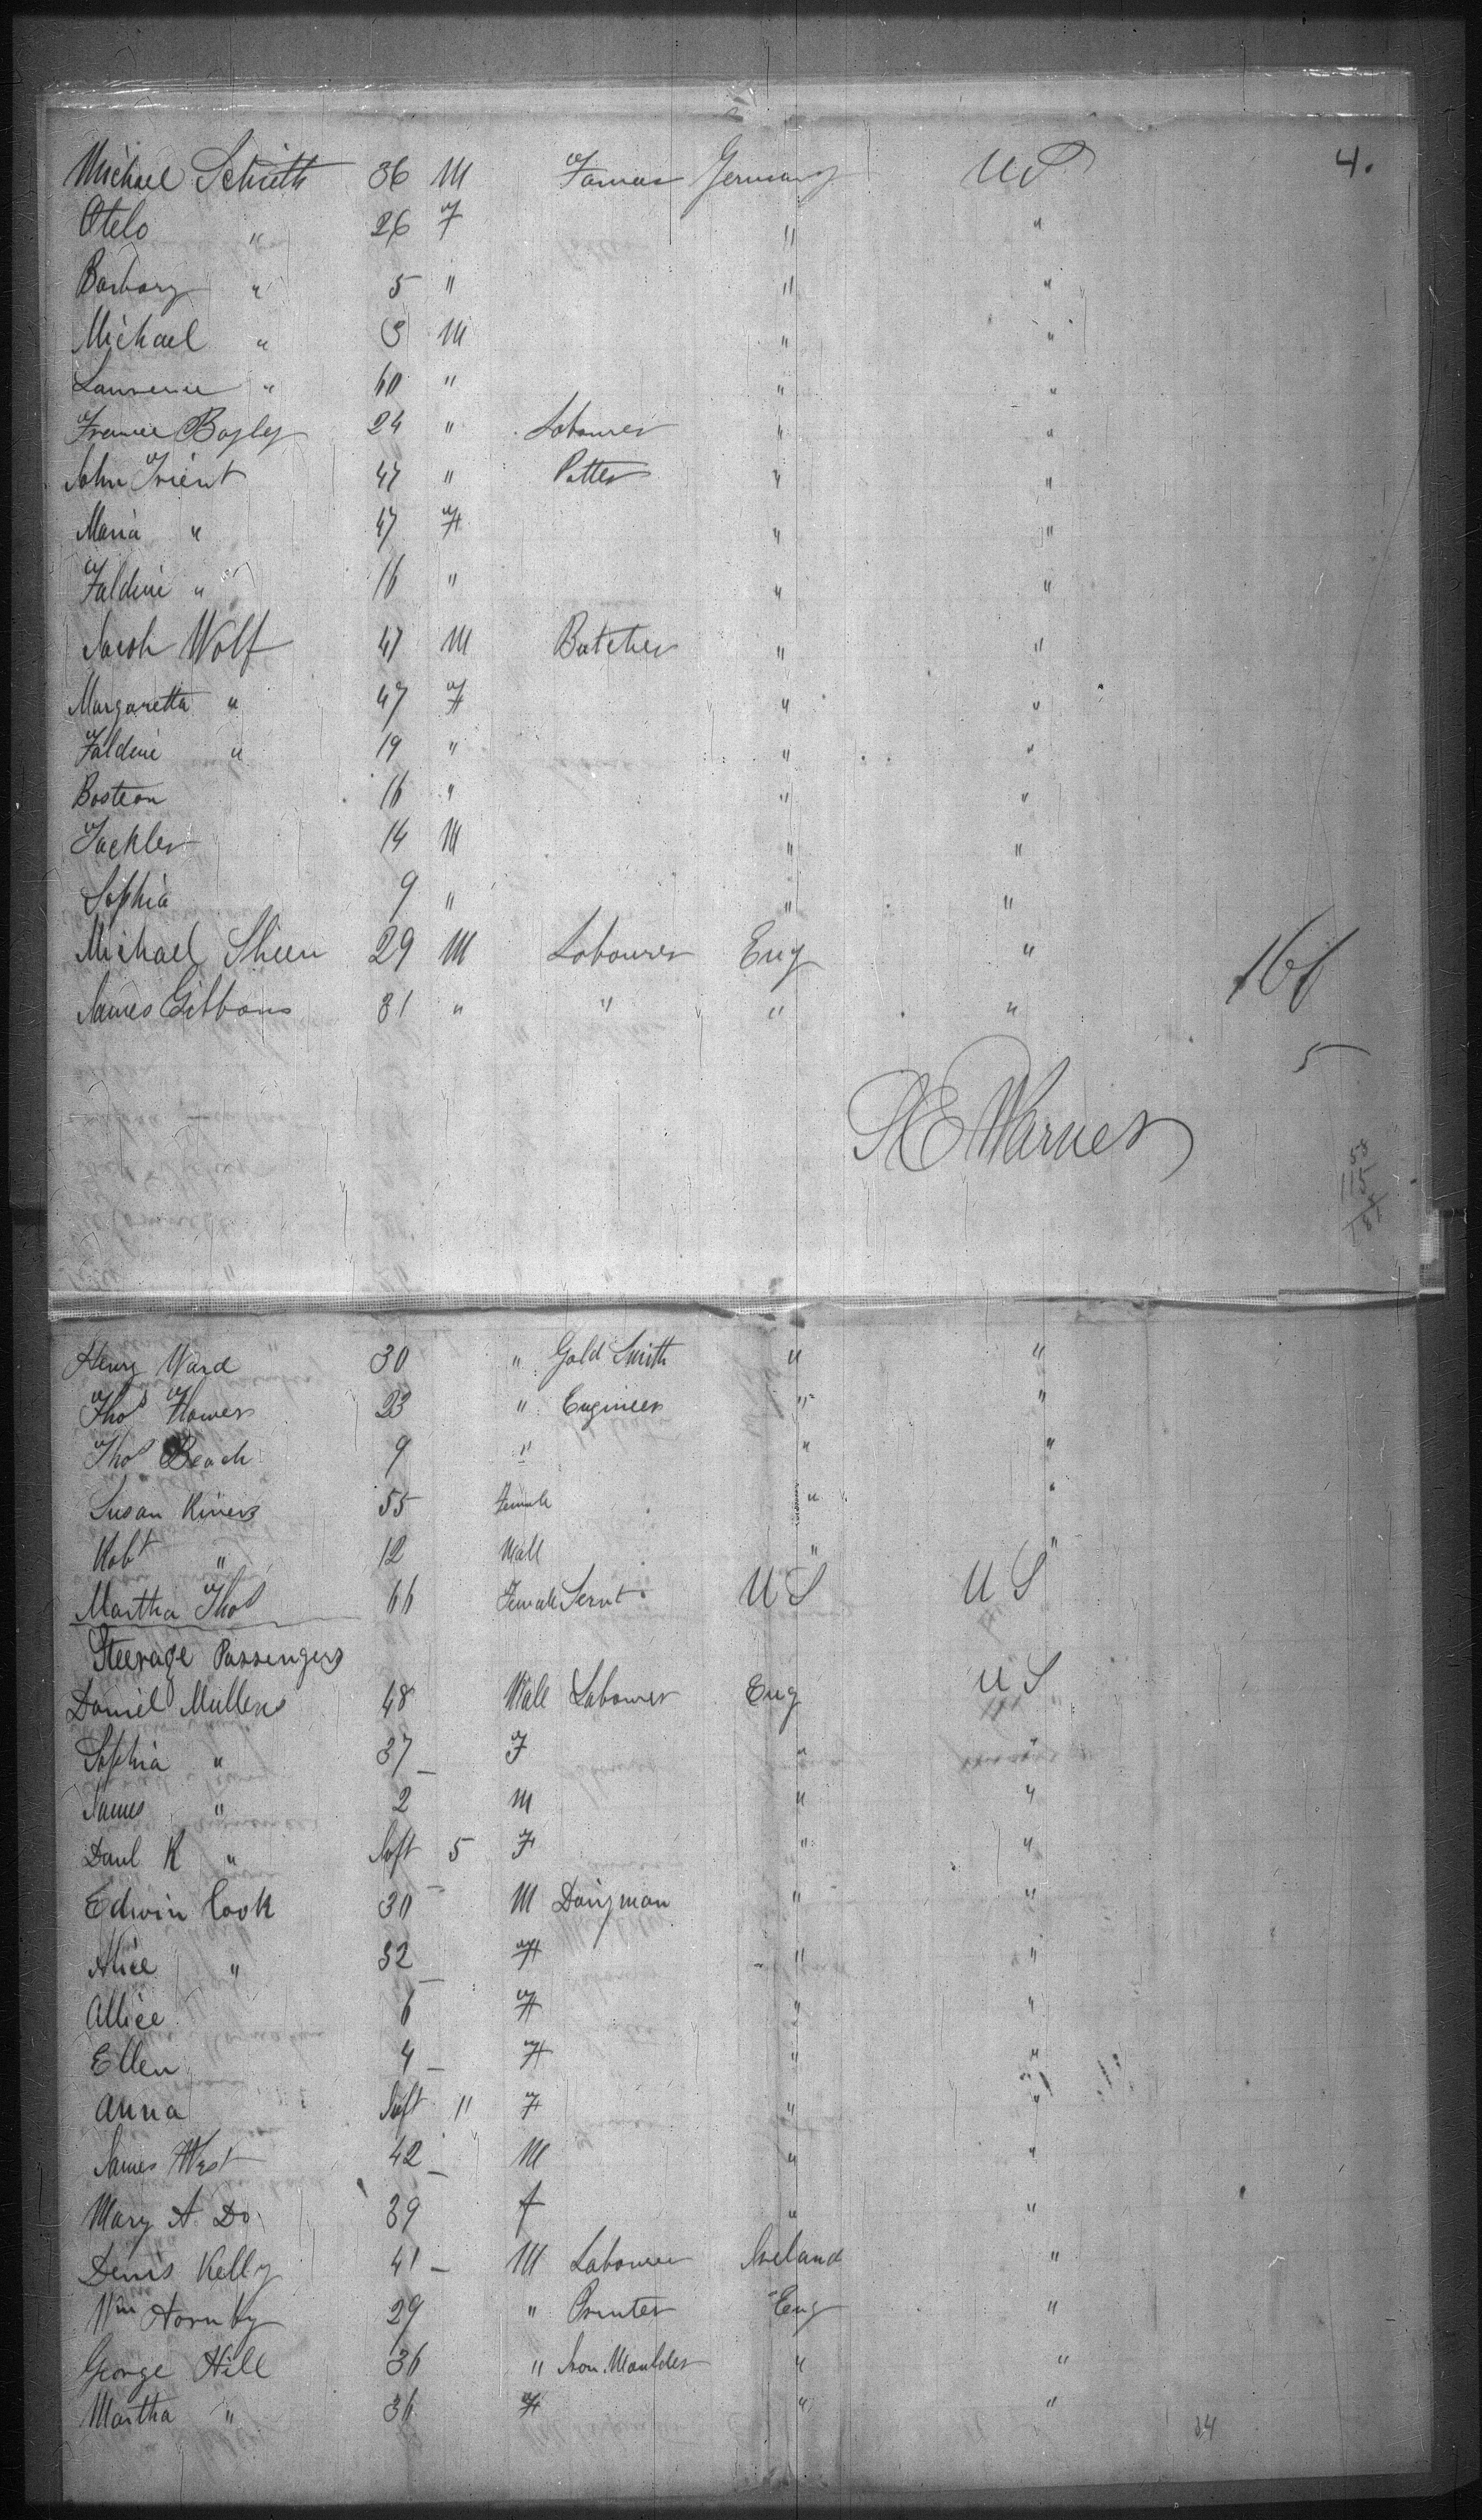 4.
Michael Schuth 36 M Farmer Germany US
Otelo " 26 F " "
Barbary " 5 " " "
Michael " 3 M " "
Lawrence " 60 " " "
France Bagley 24 " Labourer " "
John Trient 47 " Potter " "
Maria " 47 F " "
Faldine " 16 " " "
Jacob Wolf 47 M Butcher " "
Margaretta " 47 F " "
Faldine " 19 " " "
Bostean 16 " " "
Jackler 14 M " "
Sophia 9 " " "
Michael Sheen 29 M Labourer Eng "
James Gibbons 31 " " " "
166
5
S E Warner
58
115
Henry Ward 30 " Gold Smith " "
Thos Flower 23 " Engineer " "
Thos Beach 9 " " "
Susan Rivers 55 Female " "
Robt " 12 Mall " "
Martha Thos 66 Female Servt US US
Steerage Passengers
Daniel Mullens 48 Mall Labourer Eng US
Sophia " 37 F " "
James " 2 M " "
Danl K " Inft 5 F " "
Edwin Cook 30 M Dairyman " "
Alice " 32 F " "
Allice 6 F " "
Ellen 4 F " "
Anna Inft 11 F " "
James West 42 M " "
Mary A. Do 39 f " "
Denis Kelly 41 M Labourer Ireland "
Wm Hornby 29 " Printer Eng "
George Hill 36 " Iron Moulder " "
Martha " 36 F " "